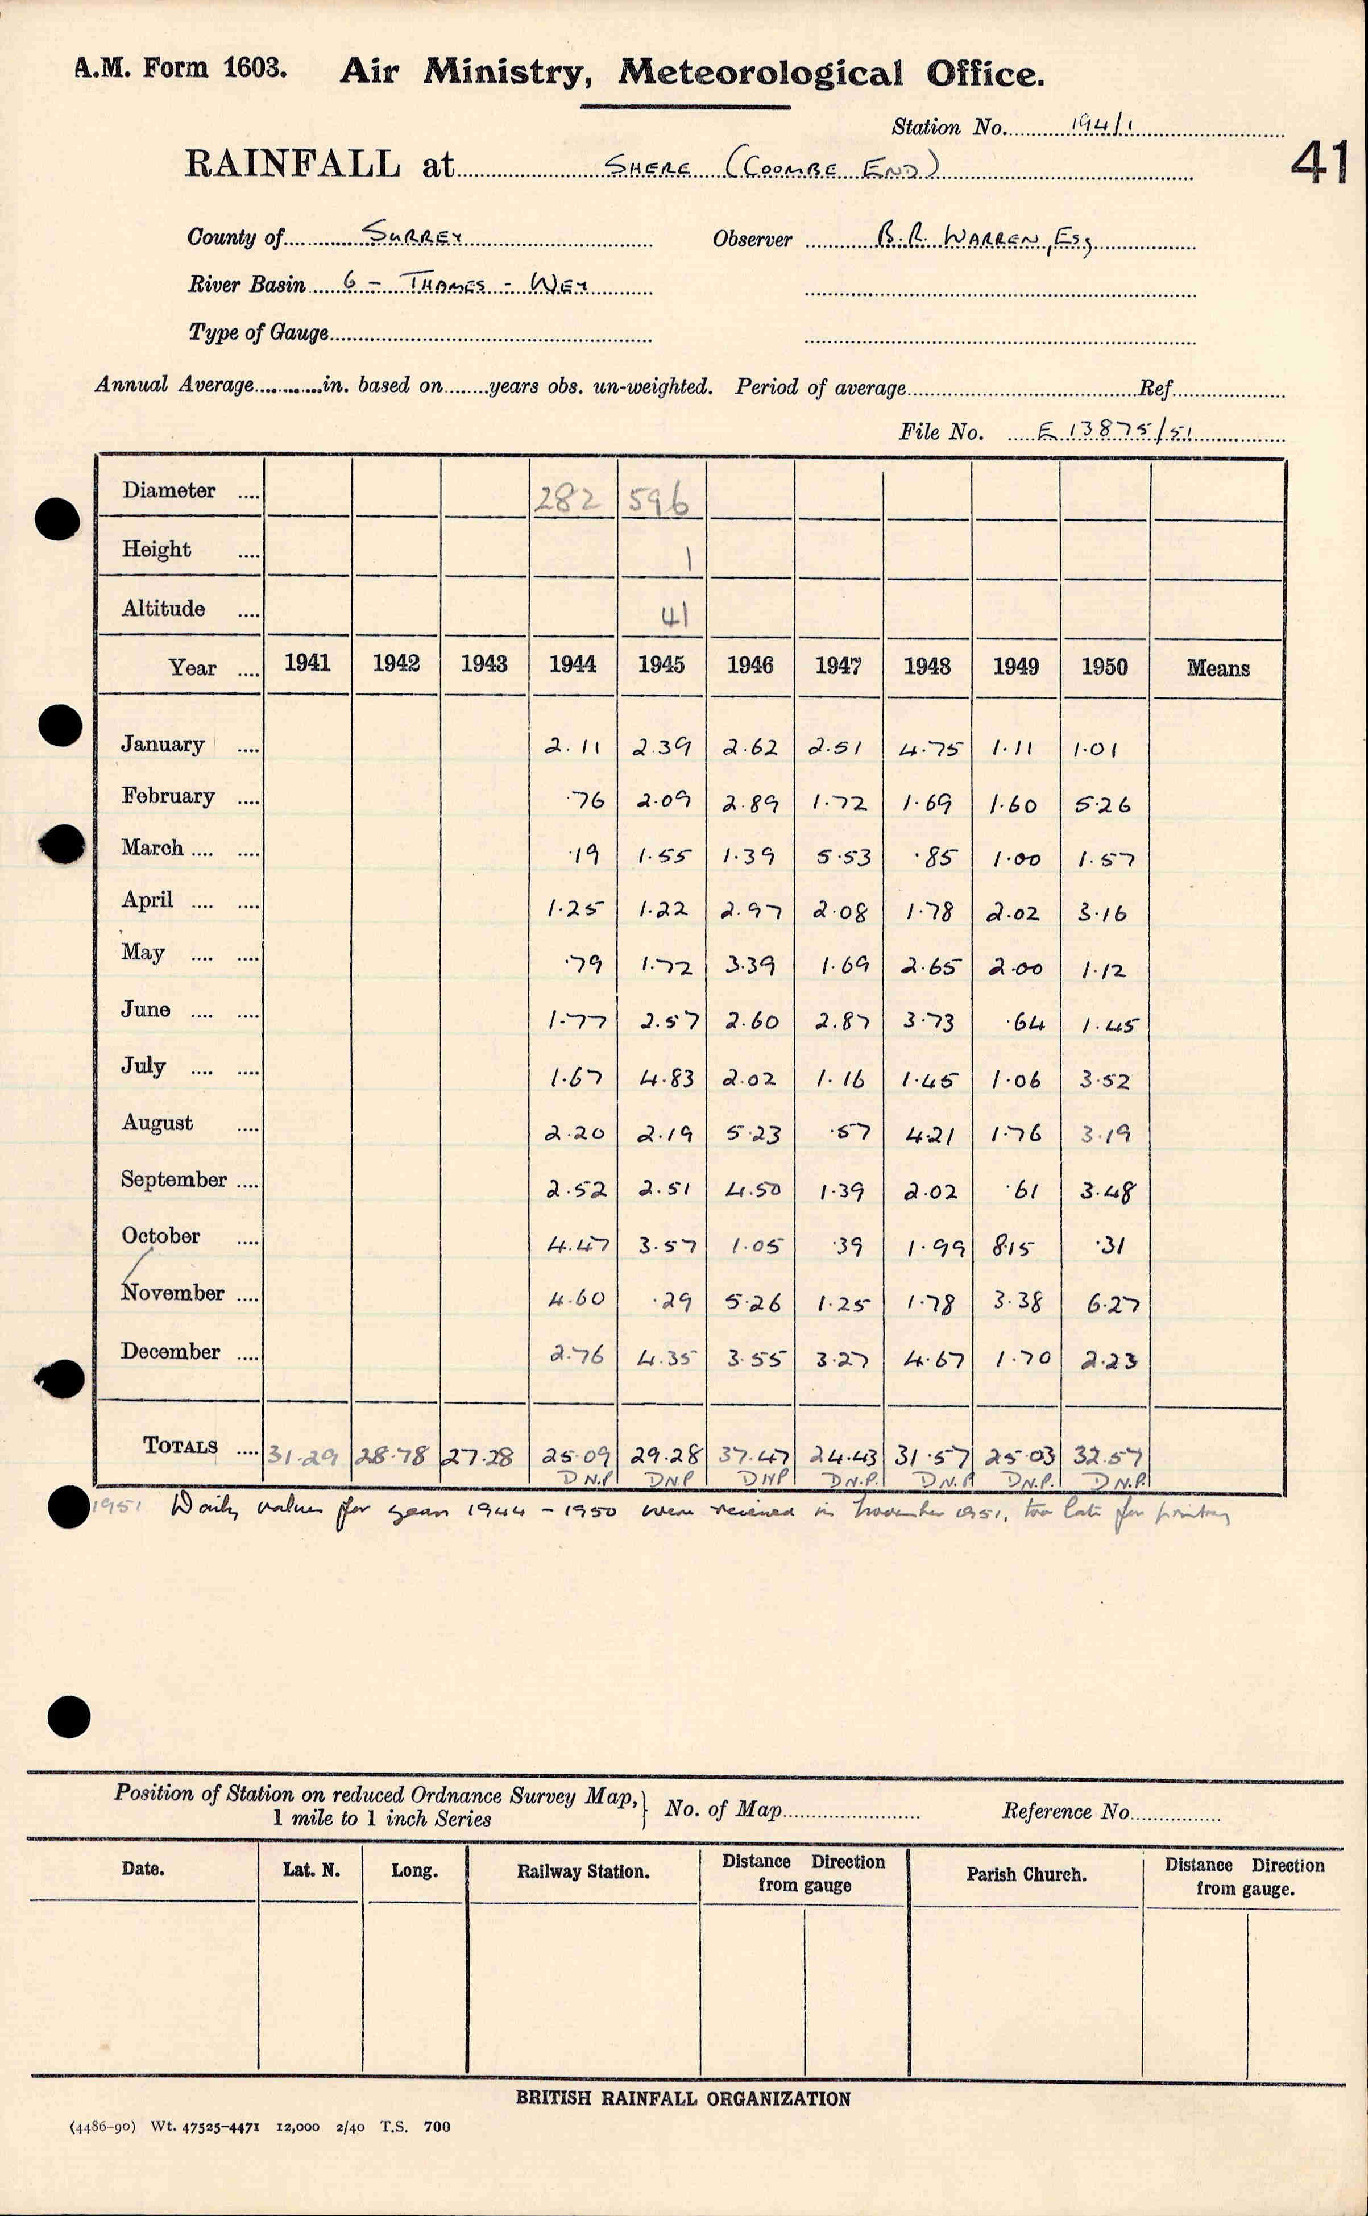 A.M. Form 1603. Air Ministry, Meteorological Office.
Station No. 194/1
41
RAINFALL at SHERE (COOMBE END)
County of SURREY Observer B.R. WARREN, Esq
River Basin 6 - THAMES - WEY
Type of Gauge
Annual Average in. based on years obs. un-weighted. Period of average Ref
File No. E 13875/51
Diameter .... 282 596
Height .... 1
Altitude .... 41
Year .... 1941 1942 1943 1944 1945 1946 1947 1948 1949 1950 Means
January .... 2.11 2.39 2.62 2.51 4.75 1.11 1.01
February .... .76 2.09 2.89 1.72 1.69 1.60 5.26
March .... .... .19 1.55 1.39 5.53 .85 1.00 1.57
April .... .... 1.25 1.22 2.97 2.08 1.78 2.02 3.16
May .... .... .79 1.72 3.39 1.69 2.65 2.00 1.12
June .... .... 1.77 2.57 2.60 2.87 3.73 .64 1.45
July .... .... 1.67 4.83 2.02 1.16 1.45 1.06 3.52
August .... 2.20 2.19 5.23 .57 4.21 1.76 3.19
September .... 2.52 2.51 4.50 1.39 2.02 .61 3.48
October .... 4.47 3.57 1.05 .39 1.99 8.15 .31
November .... 4.60 .29 5.26 1.25 1.78 3.38 6.27
December .... 2.76 4.35 3.55 3.27 4.67 1.70 2.23
TOTALS .... 31.29 28.78 27.28 25.09 29.28 37.47 24.43 31.57 25.03 32.57
D.N.P. DNP DNP D.N.P. D.N.P D.N.P. D.N.P.
1951 Daily values for years 1944 - 1950 were received in November 1951, too late for printing
Position of Station on reduced Ordnance Survey Map, } No. of Map Reference No.
1 mile to 1 inch Series
Date. Lat. N. Long. Railway Station. Distance Direction from gauge Parish Church. Distance Direction from gauge.
BRITISH RAINFALL ORGANIZATION
(4486-90) Wt. 47525-4471 12,000 2/40 T.S. 700